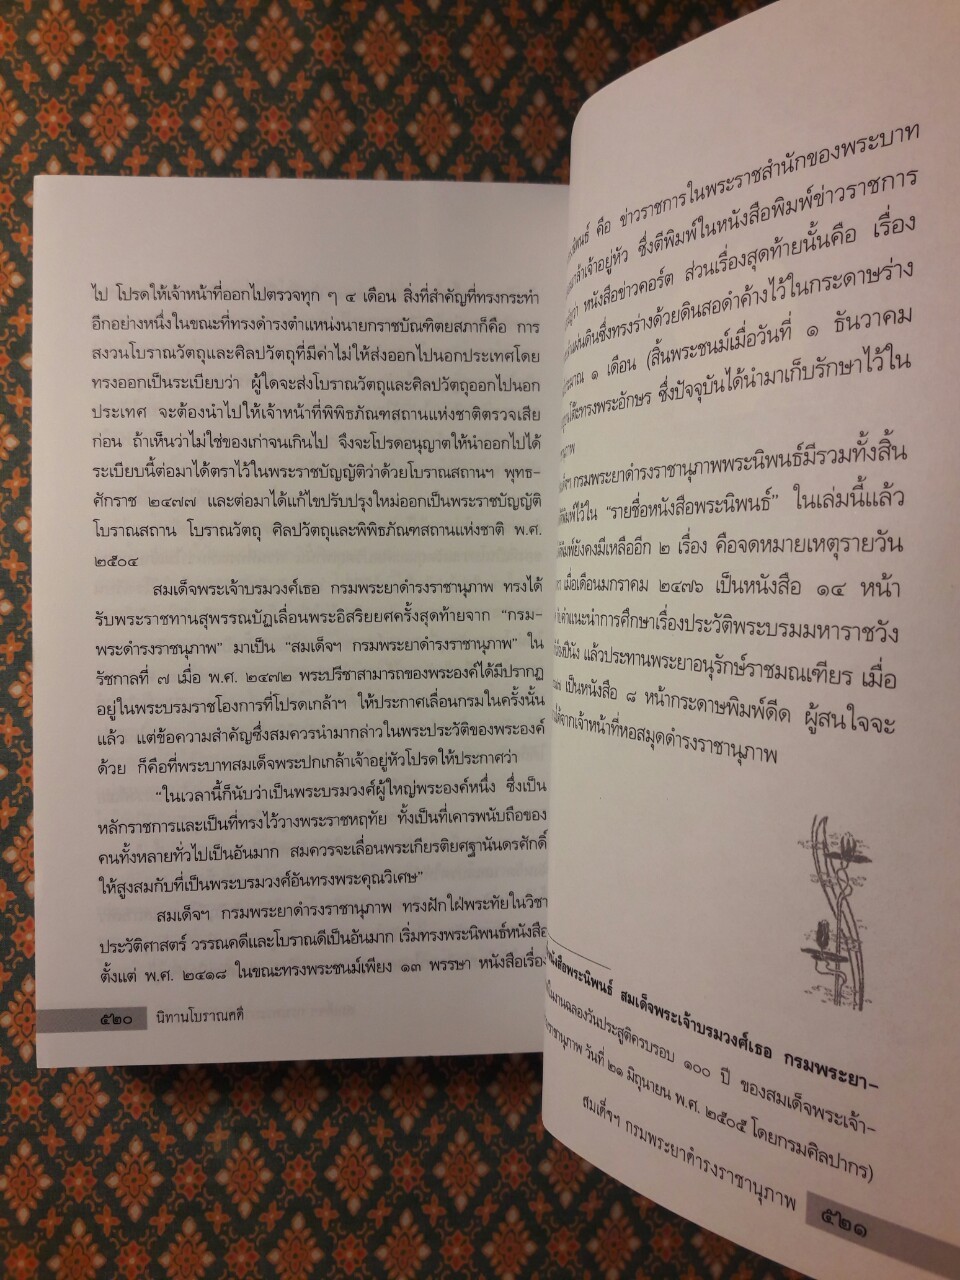 ไป โปรดให้เจ้าหน้าที่ออกไปตรวจทุก ๆ ๔ เดือน สิ่งที่สำคัญที่ทรงกระทำ
อีกอย่างหนึ่งในขณะที่ทรงดำรงตำแหน่งนายกราชบัณฑิตยสภาก็คือ การ
สงวนโบราณวัตถุและศิลปวัตถุที่มีค่าไม่ให้ส่งออกไปนอกประเทศโดย
ทรงออกเป็นระเบียบว่า ผู้ใดจะส่งโบราณวัตถุและศิลปวัตถุออกไปนอก
ประเทศ จะต้องนำไปให้เจ้าหน้าที่พิพิธภัณฑสถานแห่งชาติตรวจเสีย
ก่อน ถ้าเห็นว่าไม่ใช่ของเก่าจนเกินไป จึงจะโปรดอนุญาตให้นำออกไปได้
ระเบียบนี้ต่อมาได้ตราไว้ในพระราชบัญญัติว่าด้วยโบราณสถานฯ พุทธ-
ศักราช ๒๔๗๗ และต่อมาได้แก้ไขปรับปรุงใหม่ออกเป็นพระราชบัญญัติ
โบราณสถาน โบราณวัตถุ ศิลปวัตถุและพิพิธภัณฑสถานแห่งชาติ พ.ศ.
๒๕๐๔
สมเด็จพระเจ้าบรมวงศ์เธอ กรมพระยาดำรงราชานุภาพ ทรงได้
รับพระราชทานสุพรรณบัฏเลื่อนพระอิสริยยศครั้งสุดท้ายจาก "กรม-
พระดำรงราชานุภาพ" มาเป็น "สมเด็จฯ กรมพระยาดำรงราชานุภาพ" ใน
รัชกาลที่ ๗ เมื่อ พ.ศ. ๒๔๗๒ พระปรีชาสามารถของพระองค์ได้มีปรากฏ
อยู่ในพระบรมราชโองการที่โปรดเกล้าฯ ให้ประกาศเลื่อนกรมในครั้งนั้น
แล้ว แต่ข้อความสำคัญซึ่งสมควรนำมากล่าวในพระประวัติของพระองค์
ด้วย ก็คือที่พระบาทสมเด็จพระปกเกล้าเจ้าอยู่หัวโปรดให้ประกาศว่า
"ในเวลานี้ก็นับว่าเป็นพระบรมวงศ์ผู้ใหญ่พระองค์หนึ่ง ซึ่งเป็น
หลักราชการและเป็นที่ทรงไว้วางพระราชหฤทัย ทั้งเป็นที่เคารพนับถือของ
คนทั้งหลายทั่วไปเป็นอันมาก สมควรจะเลื่อนพระเกียรติยศฐานันดรศักดิ์
ให้สูงสมกับที่เป็นพระบรมวงศ์อันทรงพระคุณวิเศษ"
สมเด็จฯ กรมพระยาดำรงราชานุภาพ ทรงฝักใฝ่พระทัยในวิชา
ประวัติศาสตร์ วรรณคดีและโบราณดีเป็นอันมาก เริ่มทรงพระนิพนธ์หนังสือ
ตั้งแต่ พ.ศ. ๒๔๑๘ ในขณะทรงพระชนม์เพียง ๑๓ พรรษา หนังสือเรื่อง
๕๒๐ นิทานโบราณคดี
คือ ข่าวราชการในพระราชสำนักของพระบาท
เจ้าอยู่หัว ซึ่งตีพิมพ์ในหนังสือพิมพ์ข่าวราชการ
หนังสือข่าวคอร์ต ส่วนเรื่องสุดท้ายนั้นคือ เรื่อง
แผ่นดินซึ่งทรงร่างด้วยดินสอดำค้างไว้ในกระดาษร่าง
๑ เดือน (สิ้นพระชนม์เมื่อวันที่ ๑ ธันวาคม
ทรงพระอักษร ซึ่งปัจจุบันได้นำมาเก็บรักษาไว้ใน
กรมพระยาดำรงราชานุภาพพระนิพนธ์มีรวมทั้งสิ้น
ไว้ใน "รายชื่อหนังสือพระนิพนธ์" ในเล่มนี้แล้ว
ยังคงมีเหลืออีก ๒ เรื่อง คือจดหมายเหตุรายวัน
เมื่อเดือนมกราคม ๒๔๗๖ เป็นหนังสือ ๑๔ หน้า
คำแนะนำการศึกษาเรื่องประวัติพระบรมมหาราชวัง
แล้วประทานพระยาอนุรักษ์ราชมณเฑียร เมื่อ
เป็นหนังสือ ๘ หน้ากระดาษพิมพ์ดีด ผู้สนใจจะ
จากเจ้าหน้าที่หอสมุดดำรงราชานุภาพ
พระนิพนธ์ สมเด็จพระเจ้าบรมวงศ์เธอ กรมพระยา-
ในงานฉลองวันประสูติครบรอบ ๑๐๐ ปี ของสมเด็จพระเจ้า-
วันที่ ๒๑ มิถุนายน พ.ศ. ๒๕๐๕ โดยกรมศิลปากร)
สมเด็จฯ กรมพระยาดำรงราชานุภาพ ๕๒๑